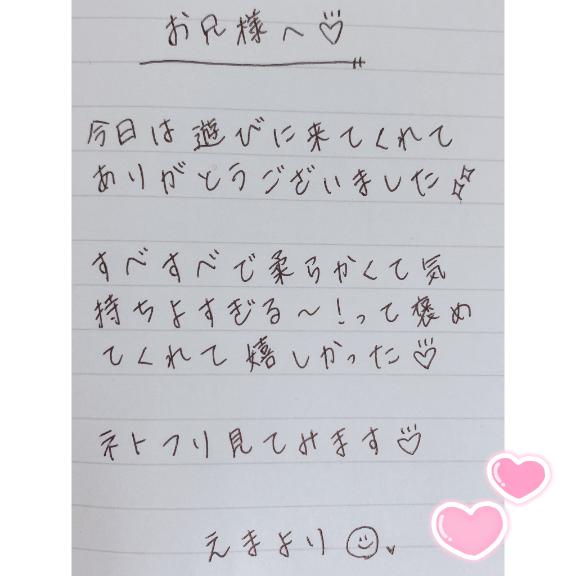 お兄様へ♡
今日は遊びに来てくれて
ありがとうございました
すべすべで柔らかくて気
持ちよすぎる〜!って褒め
てくれて嬉しかった♡
ネトフリ見てみます♡
えまより